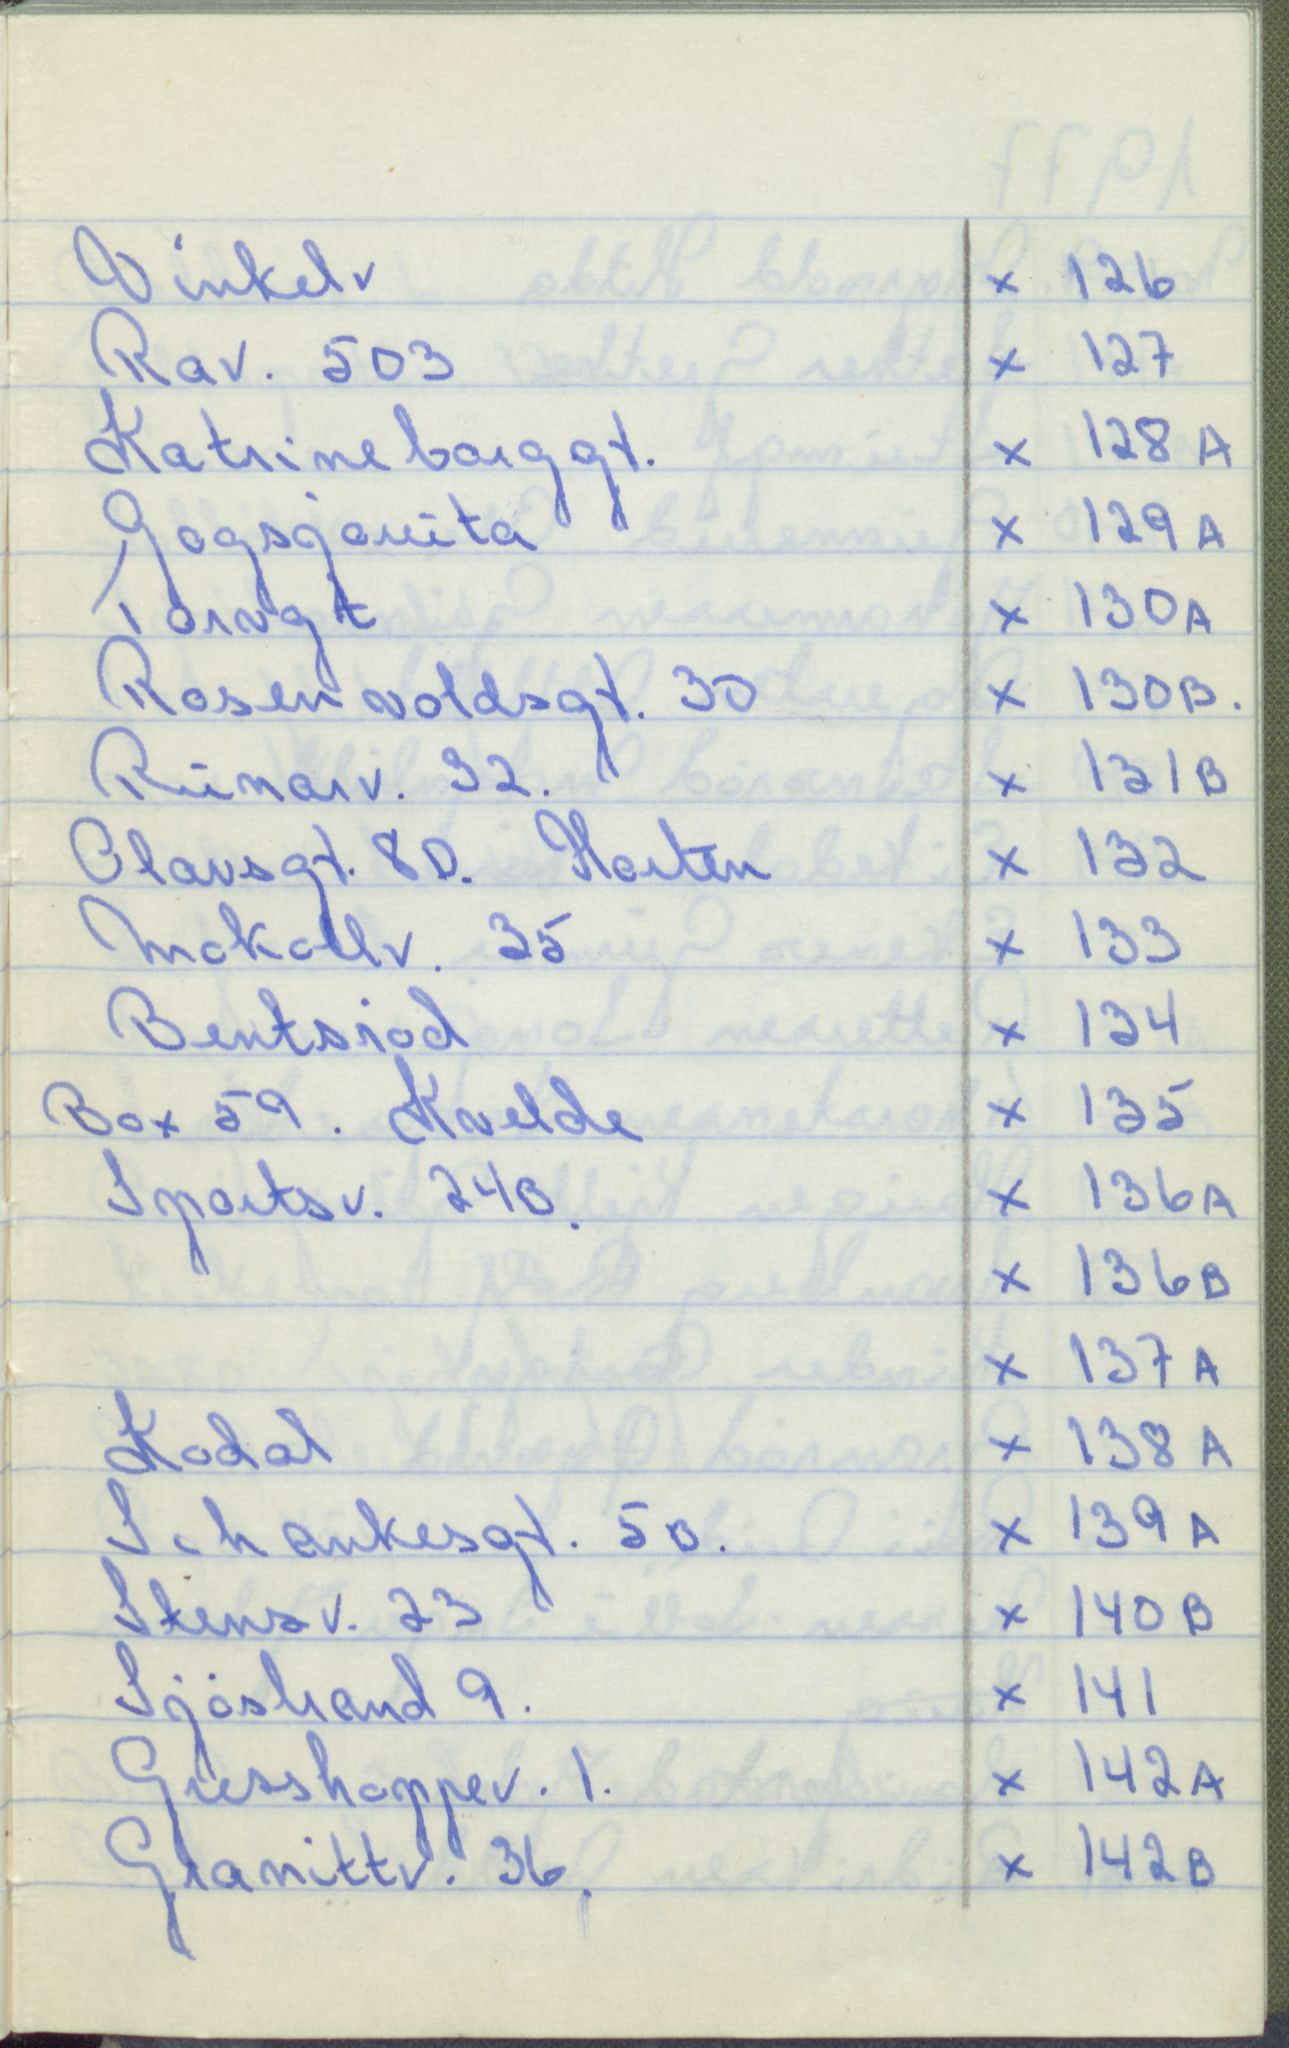 Vinkelv x 126
Rav. 503 x 127
Katrineborggt. x 128 A
x 129 A
Torvgt x 130 A
Rosenvoldsgt. 30 x 130B.
Runarv. 32. x 131 B
Olavsgt. 8D. Horten x 132
35 x 133
Bentsrød x 134
Box 59. Kvelde x 135
Sportsv. 24B. x 136 A
x 136 B
x 137 A
Kodal x 138 A
Schankesgt. 5D. x 139 A
Stensv. 23 x 140 B
Sjöstrand 9. x 141
Gresshoppev. 1. x 142 A
Granittv. 36. x 142 B